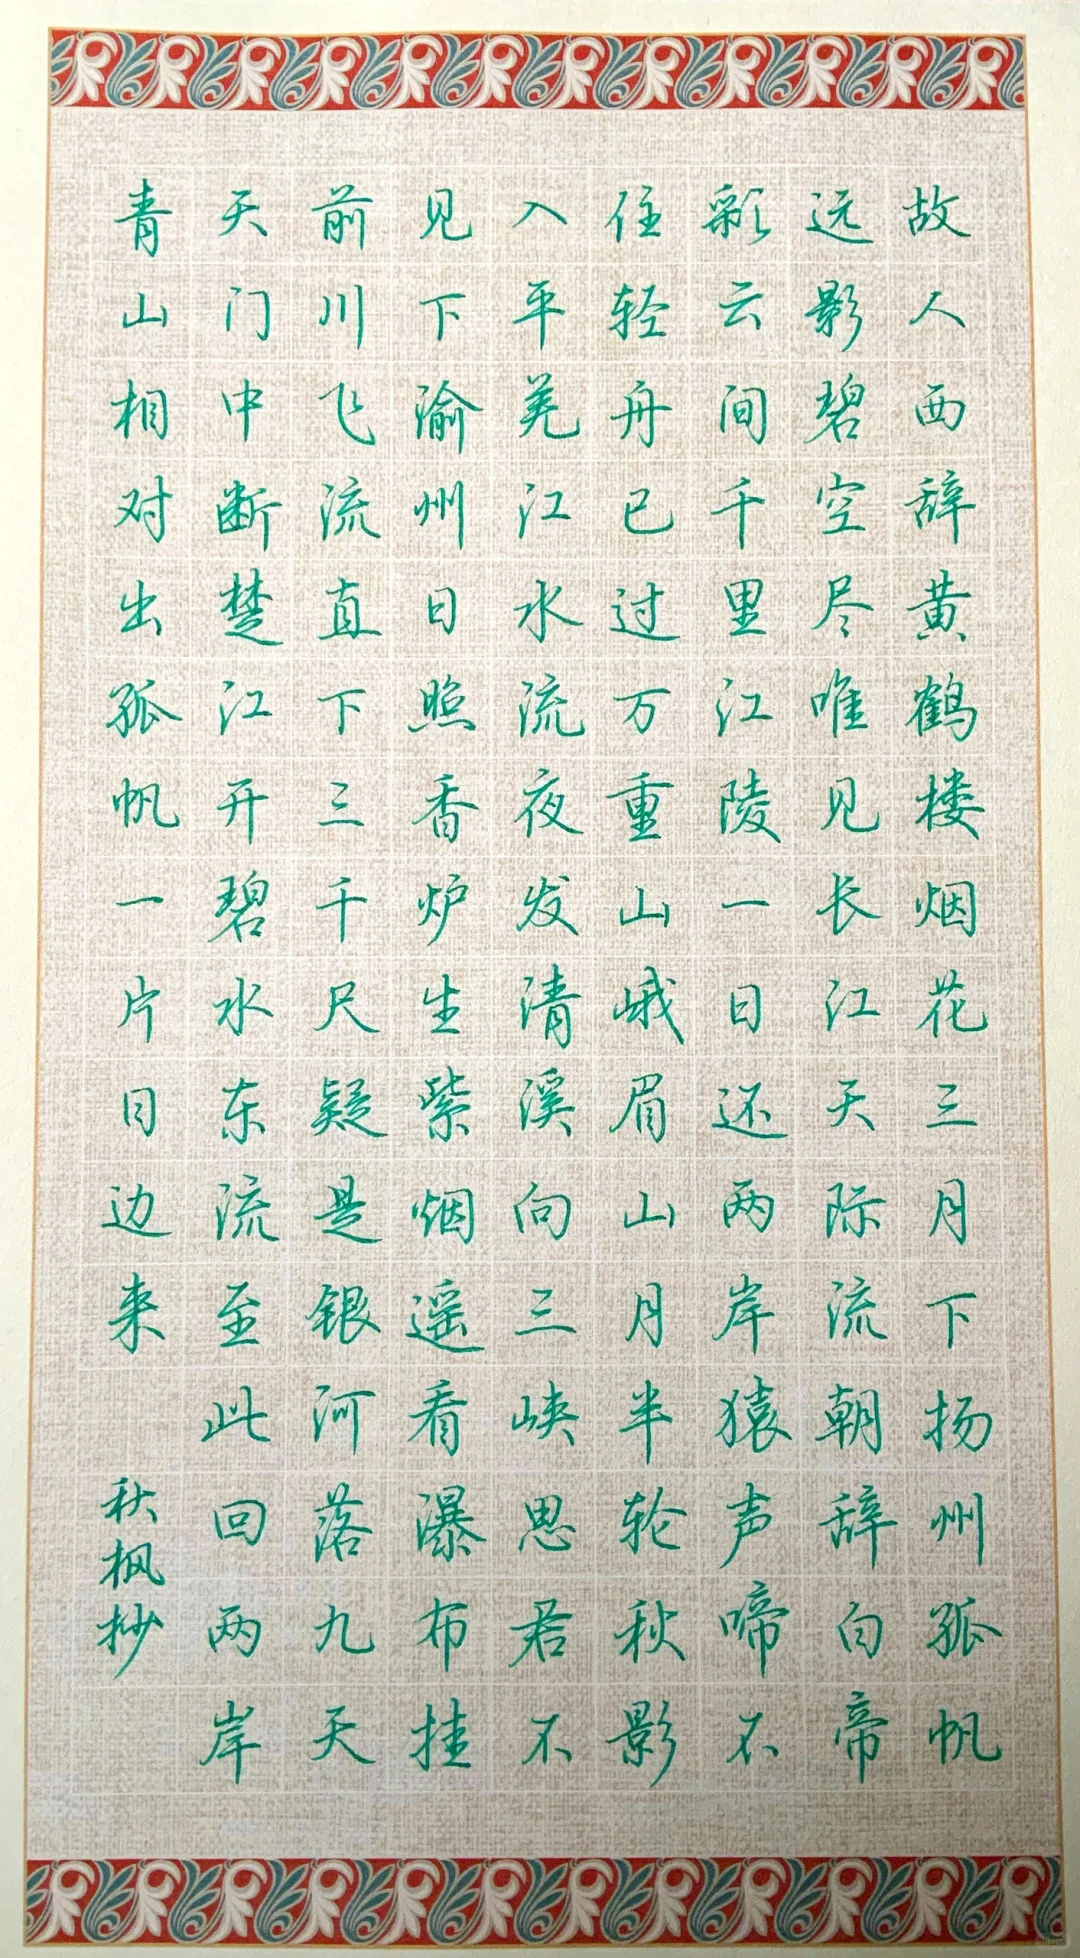 故人西辞黄鹤楼烟花三月下扬州孤帆
远影碧空尽唯见长江天际流朝辞白帝
彩云间千里江陵一日还两岸猿声啼不
住轻舟已过万重山峨眉山月半轮秋影
入平羌江水流夜发清溪向三峡思君不
见下渝州日照香炉生紫烟遥看瀑布挂
前川飞流直下三千尺疑是银河落九天
天门中断楚江开碧水东流至此回两岸
青山相对出孤帆一片日边来
秋枫抄